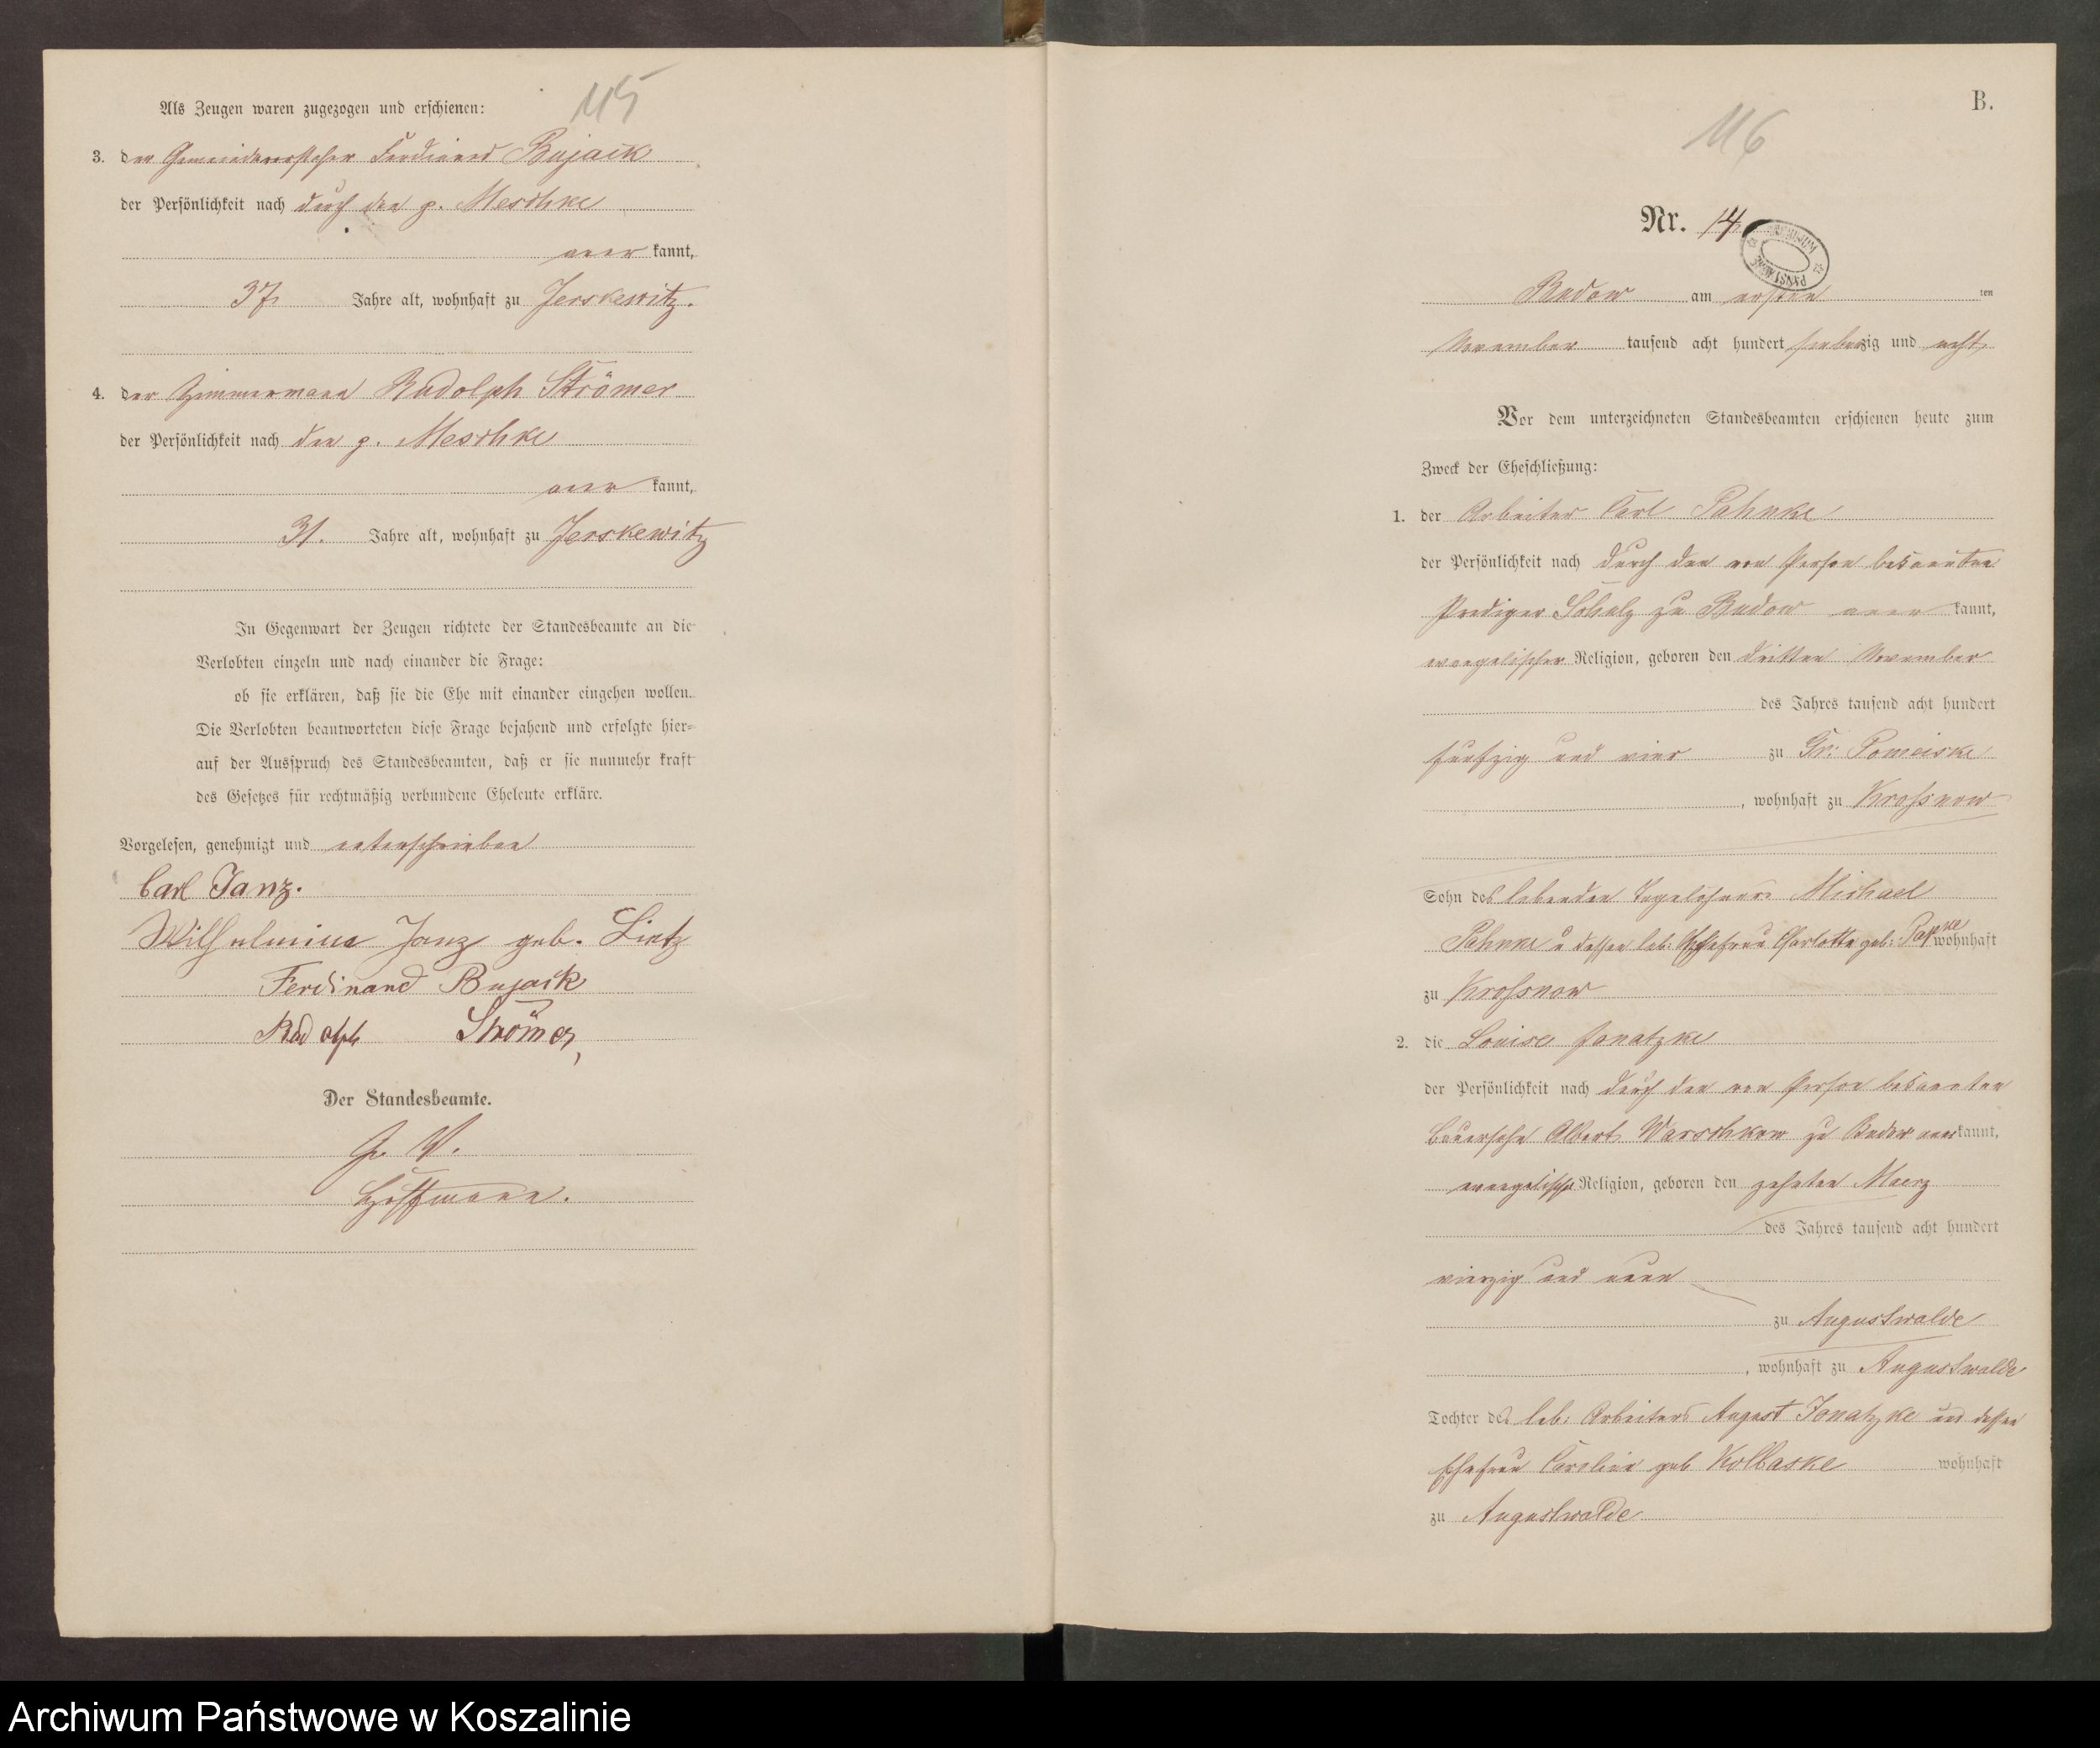 115
Als Zeugen waren zugezogen und erschienen:
3. der Gemeindevorsteher Ferdinand Bujack
der Persönlichkeit nach durch den p. Meschke
aner kannt,
37 Jahre alt, wohnhaft zu Jerskewitz.
4. der Zimmermann Rudolph Strömer
der Persönlichkeit nach den p. Meschke
aner kannt,
31. Jahre alt, wohnhaft zu Jerskewitz
In Gegenwart der Zeugen richtete der Standesbeamte an die
Verlobten einzeln und nach einander die Frage:
ob sie erklären, daß sie die Ehe mit einander eingehen wollen.
Die Verlobten beantworteten diese Frage bejahend und erfolgte hier=
auf der Ausspruch des Standesbeamten, daß er sie nunmehr kraft
des Gesetzes für rechtmäßig verbundene Eheleute erkläre.
Vorgelesen, genehmigt und unterschrieben
Carl Janz.
Wilhelmine Janz geb. Lietz
Ferdinand Bujack
Rudolph Strömer,
Der Standesbeamte.
J. V.
Hoffmann.
B.
116
Nr. 14
ARCHIWUM PAŃSTWOWE
Budow am ersten ten
November tausend acht hundert siebenzig und acht
Vor dem unterzeichneten Standesbeamten erschienen heute zum
Zweck der Eheschließung:
1. der Arbeiter Carl Pahnke
der Persönlichkeit nach durch den von Person bekannten
Prediger Scholz zu Budow aner kannt,
evangelischer Religion, geboren den dritten November
des Jahres tausend acht hundert
fünfzig und vier zu Gr: Pomeiske
, wohnhaft zu Krossnow
Sohn des lebenden Tagelöhners Michael
Pahnke u dessen leb: Ehefrau Charlotte geb: Papke wohnhaft
zu Krossnow
2. die Louise Jonatzke
der Persönlichkeit nach durch den von Person bekannten
Bauersohn Albert Warschkow zu Budow anerkannt,
evangelischer Religion, geboren den zehnten Maerz
des Jahres tausend acht hundert
vierzig und neun
zu Augustwalde
, wohnhaft zu Augustwalde
Tochter des leb: Arbeiters August Jonatzke und dessen
Ehefrau Caroline geb Kolbaske wohnhaft
zu Augustwalde
Archiwum Państwowe w Koszalinie